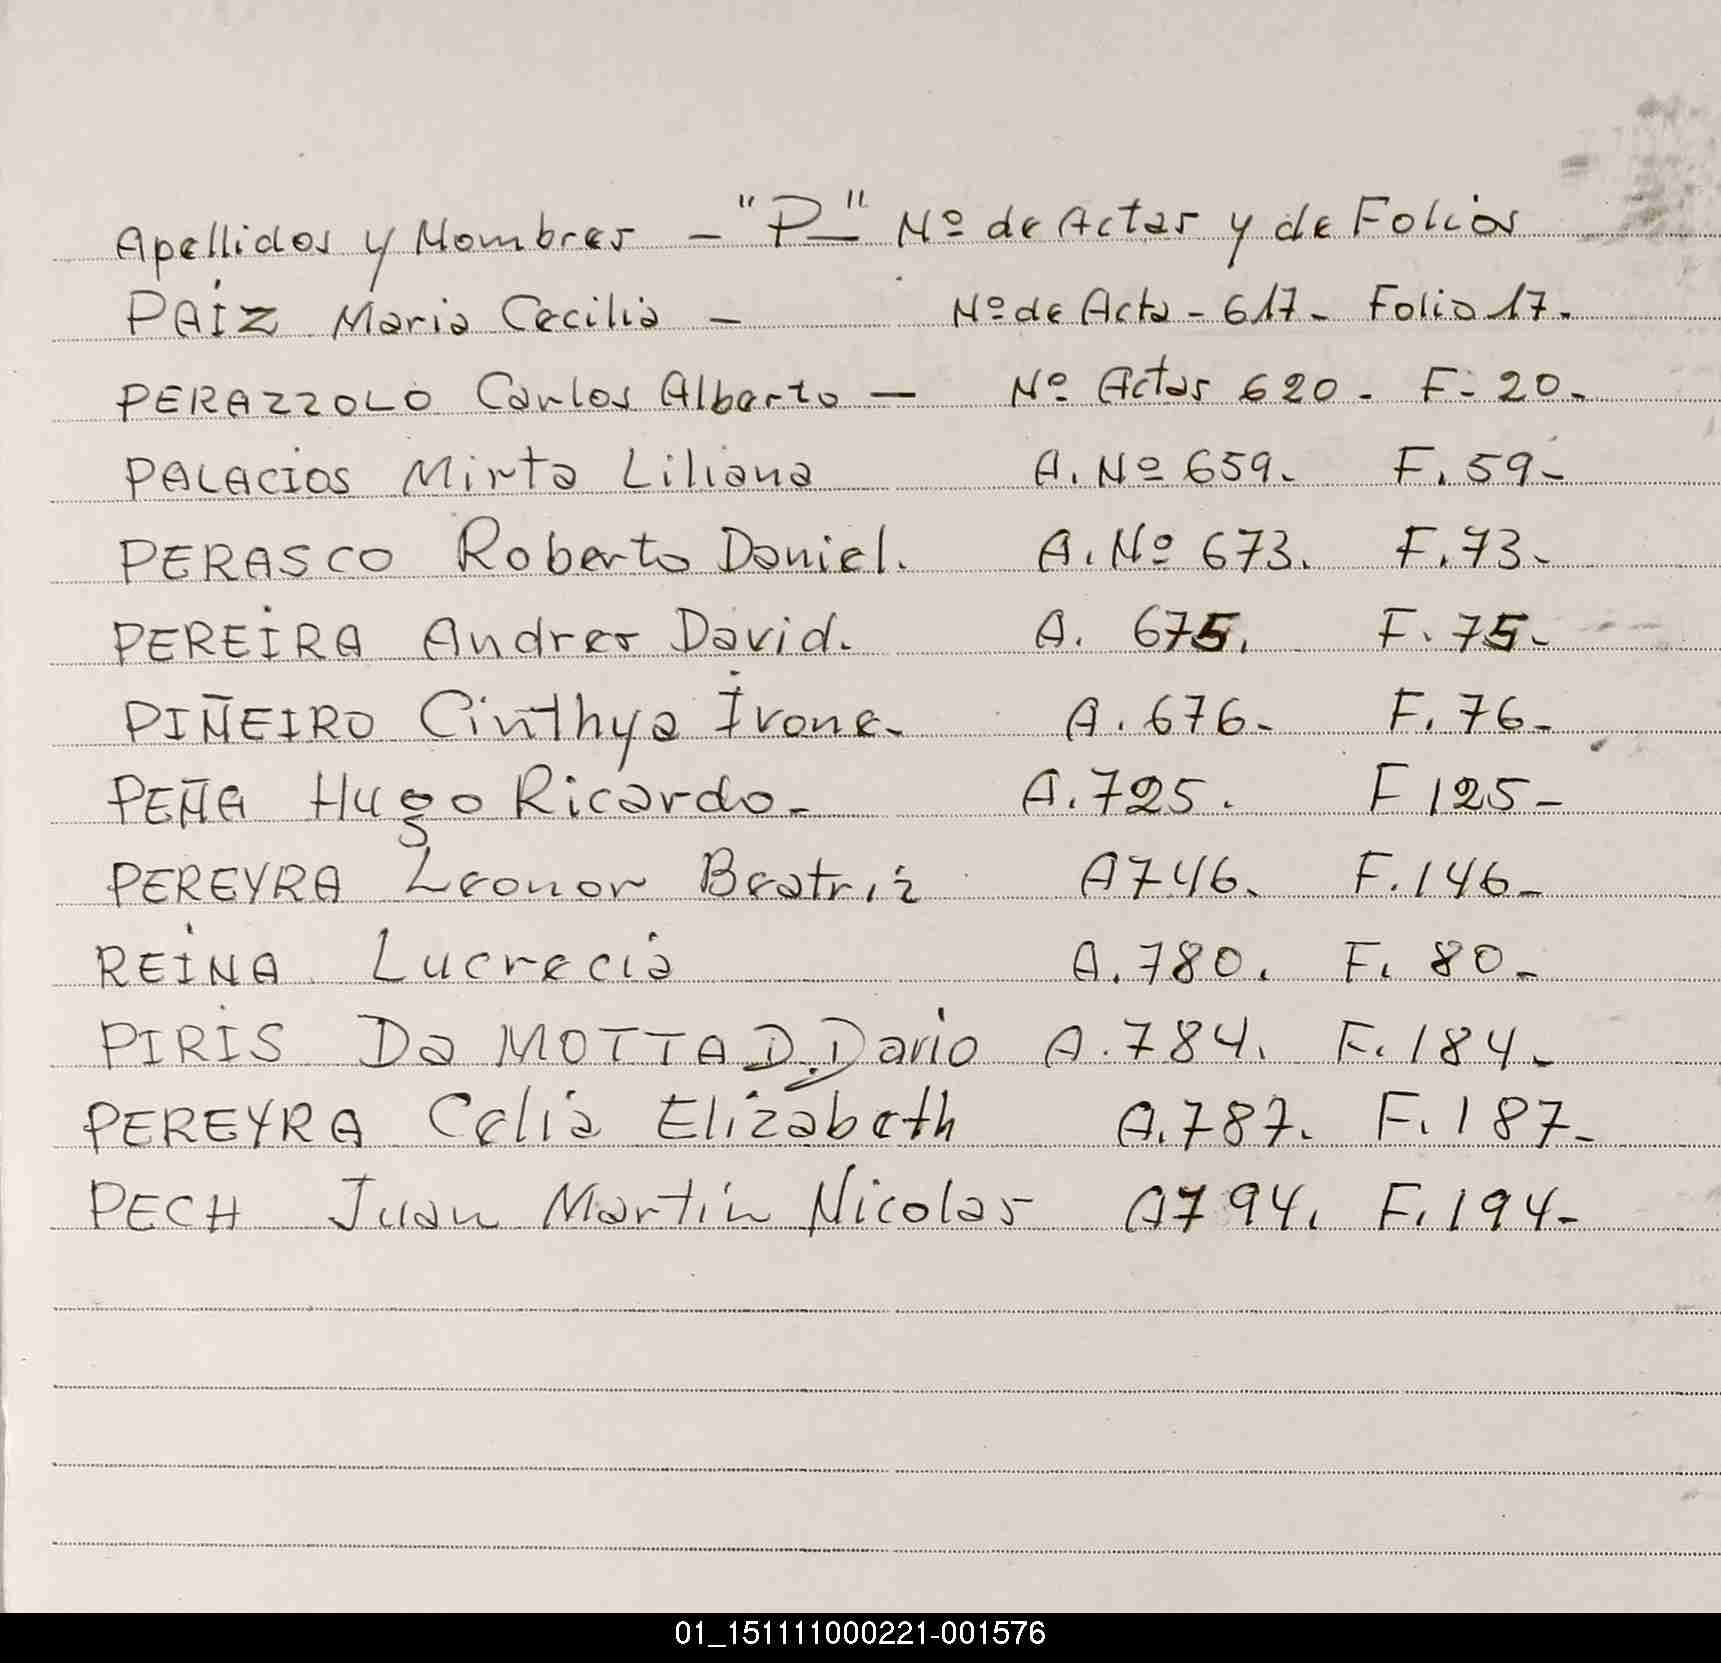 Apellidos y Nombres - "P" Nº de Actas y de Folios
PAIZ Maria Cecilia - Nº de Acta - 617 - Folio 17.
PERAZZOLO Carlos Alberto - Nº Actas 620. F. 20.
PALACIOS Mirta Liliana A. Nº 659. F. 59-
PERASCO Roberto Daniel. A. Nº 673. F. 73-
PEREIRA Andres David. A. 675. F. 75-
PIÑEIRO Cinthya Ivone- A. 676- F. 76-
PEÑA Hugo Ricardo- A. 725. F 125-
PEREYRA Leonor Beatriz A 746. F. 146-
REINA Lucrecia A. 780. F. 80-
PIRIS Da MOTTA D. Dario A. 784. F. 184-
PEREYRA Celia Elizabeth A. 787. F. 187-
PECH Juan Martin Nicolas A 794. F. 194-
01_151111000221-001576